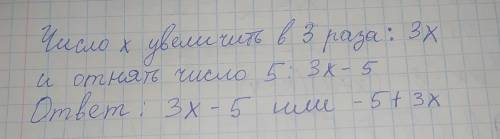 Число x увеличить в 3 раза: 3x
и отнять число 5: 3x - 5
Ответ: 3x - 5 или -5 + 3x